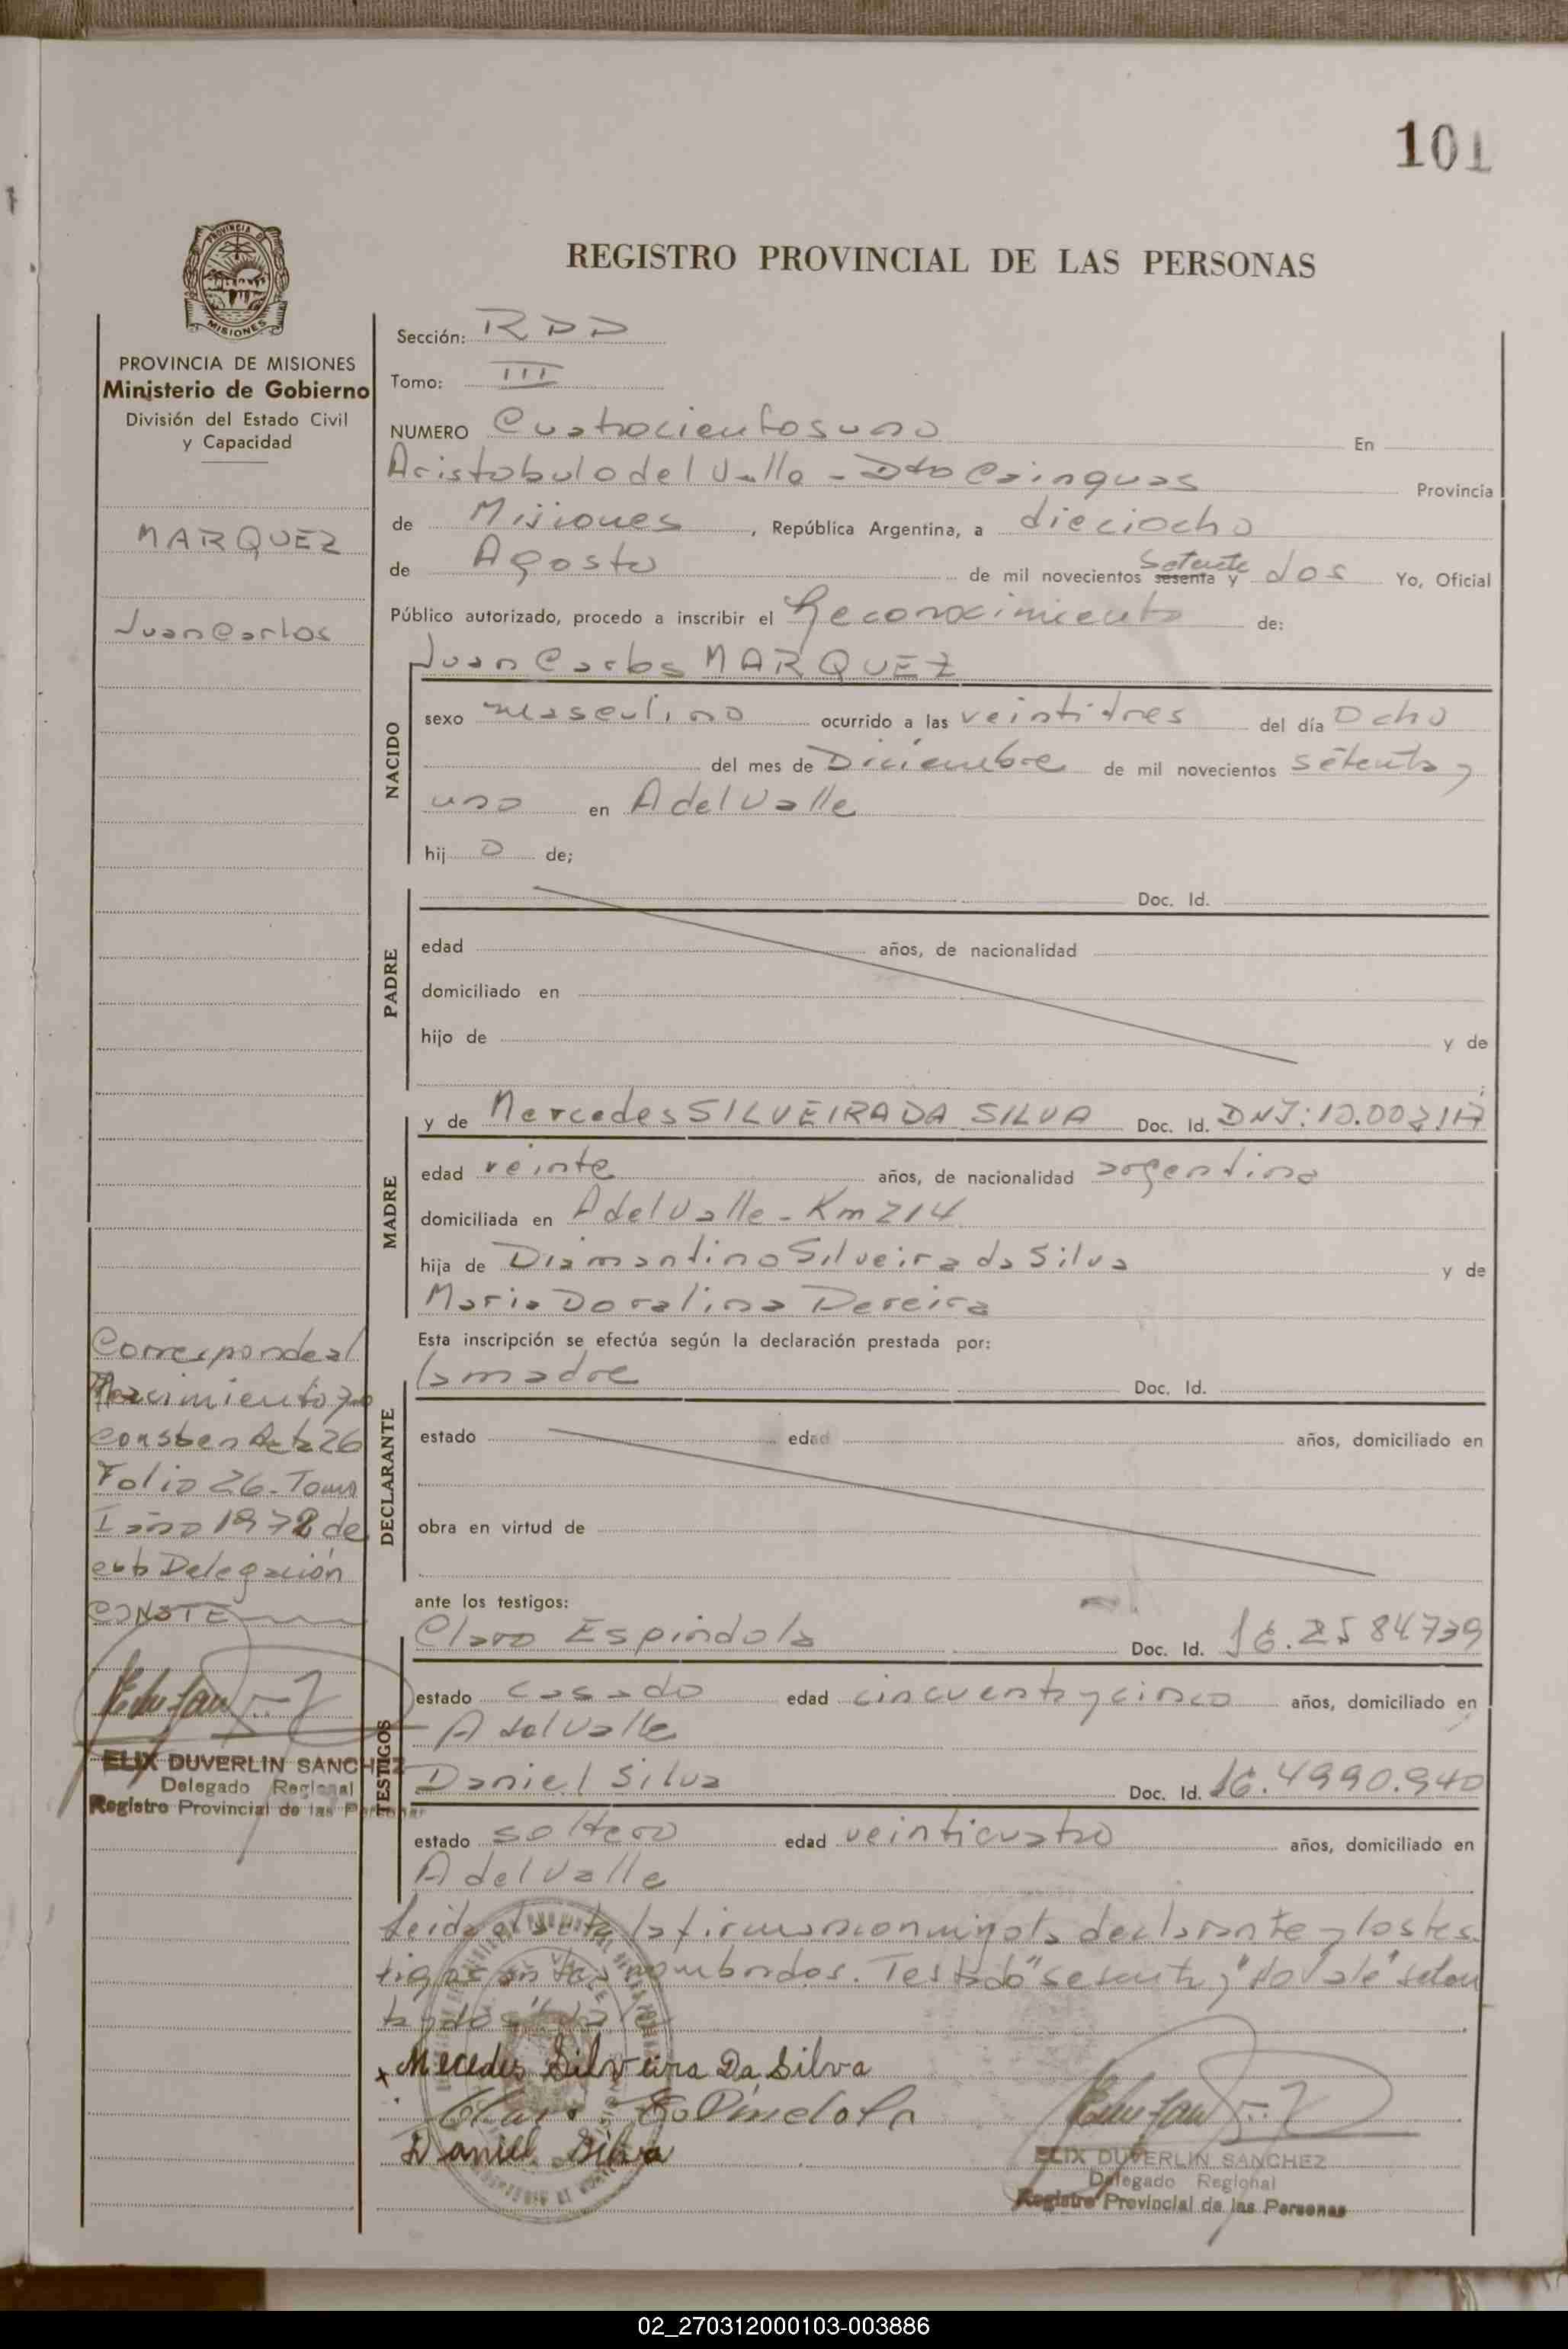 101
PROVINCIA DE
MISIONES
REGISTRO PROVINCIAL DE LAS PERSONAS
PROVINCIA DE MISIONES
Ministerio de Gobierno
División del Estado Civil
y Capacidad
MARQUEZ
Juan Carlos
Corresponde al
Nacimiento que
consta en Acta 26
Folio 26 - Tomo
I año 1972 de
esta Delegación
CONSTE
ELIX DUVERLIN SANCHEZ
Delegado Regional
Registro Provincial de las Personas
Sección: RDD
Tomo: III
NUMERO Cuatrocientos uno En
Aristobulo del Valle - Dto Cainguas Provincia
de Misiones, República Argentina, a dieciocho
de Agosto de mil novecientos sesenta y setenta dos Yo, Oficial
Público autorizado, procedo a inscribir el Reconocimiento de:
Juan Carlos MARQUEZ
NACIDO
sexo masculino ocurrido a las veintitres del día Ocho
del mes de Diciembre de mil novecientos setenta y
uno en A del Valle
hij o de;
PADRE
Doc. Id.
edad años, de nacionalidad
domiciliado en
hijo de y de
;
MADRE
y de Mercedes SILVEIRA DA SILVA Doc. Id. DNI: 10.003.117
edad veinte años, de nacionalidad argentina
domiciliada en A del Valle - Km 214
hija de Diamantino Silveira da Silva y de
Maria Doralina Pereira
Esta inscripción se efectúa según la declaración prestada por:
DECLARANTE
la madre Doc. Id.
estado edad años, domiciliado en
obra en virtud de
ante los testigos:
TESTIGOS
Claro Espindola Doc. Id. 16.2584739
estado casado edad cincuenta y cinco años, domiciliado en
A del Valle
Daniel Silva Doc. Id. 16.4990.940
estado soltero edad veinticuatro años, domiciliado en
A del Valle
Leida el acta la firman conmigo la declarante y los tes
tigos antes nombrados. Testado "sesenta y" "No vale" seten
ta y dos
Mecedes Silveira Da Silva
Claro Espindola
Daniel Silva
ELIX DUVERLIN SANCHEZ
Delegado Regional
Registro Provincial de las Personas
02_270312000103-003886